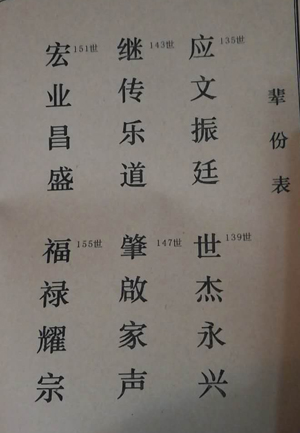 辈份表
应135世文振廷
世139世杰永兴
继143世传乐道
肇147世啟家声
宏151世业昌盛
福155世禄耀宗